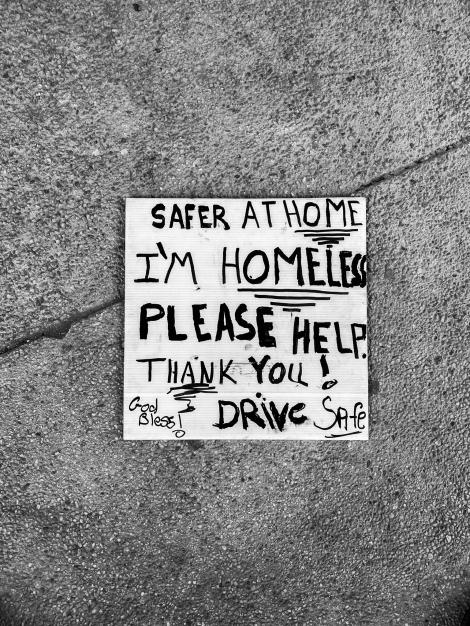 SAFER AT HOME
I'M HOMELESS
PLEASE HELP.
THANK YOU!
God Bless!
DRIVE Safe